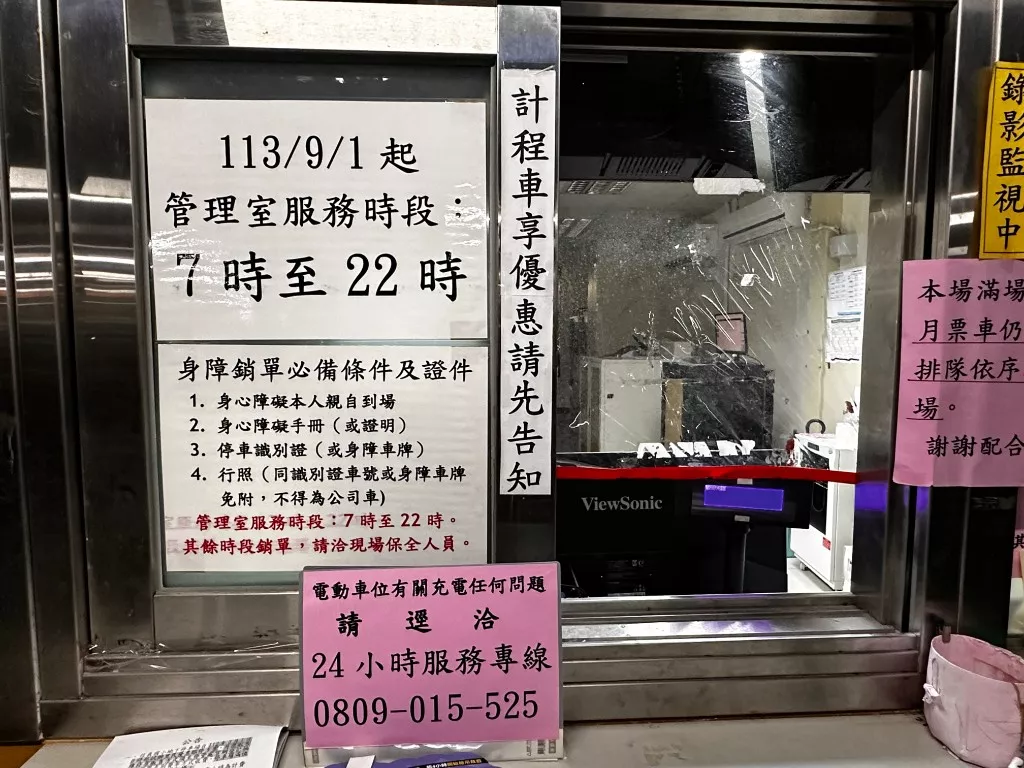 113/9/1 起
管理室服務時段：
7 時至 22 時
身障銷單必備條件及證件
1. 身心障礙本人親自到場
2. 身心障礙手冊（或證明）
3. 停車識別證（或身障車牌）
4. 行照（同識別證車號或身障車牌
免附，不得為公司車)
管理室服務時段：7 時至 22 時。
其餘時段銷單，請洽現場保全人員。
計程車享優惠請先告知
ViewSonic
電動車位有關充電任何問題
請 逕 洽
24 小時服務專線
0809-015-525
錄影監視中
本場滿場
月票車仍
排隊依序
場。
謝謝配合
公告